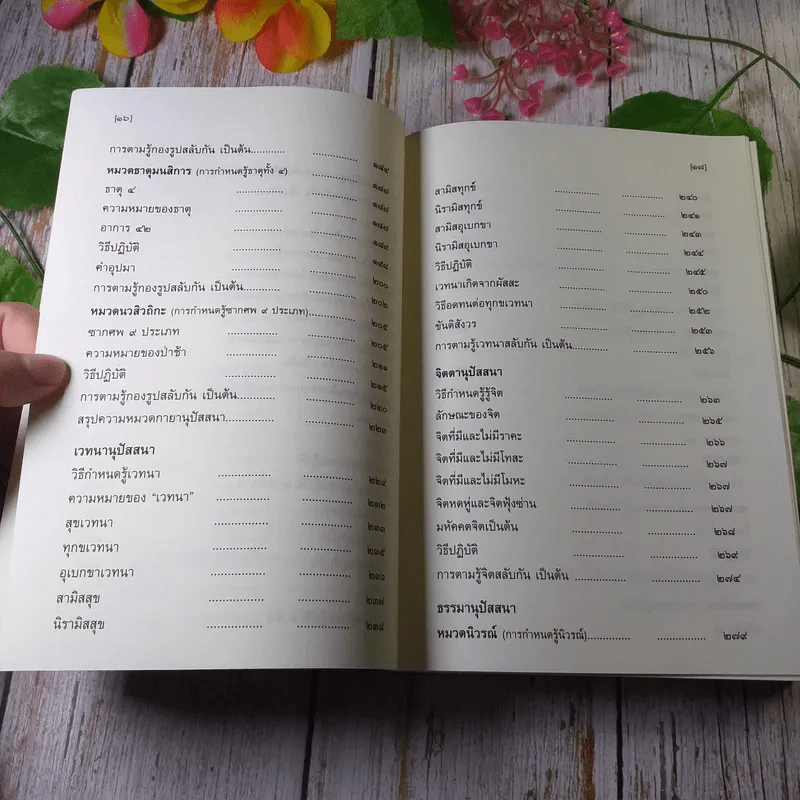 [๑๖]
การตามรู้กองรูปสลับกัน เป็นต้น............ .............. ๑๘๔
หมวดธาตุมนสิการ (การกำหนดรู้ธาตุทั้ง ๔)
ธาตุ ๔ ............... ............... ๑๘๗
ความหมายของธาตุ ............... ............... ๑๘๗
อาการ ๔๒ ............... ............... ๑๘๘
วิธีปฏิบัติ ............... ............... ๑๘๙
คำอุปมา ............... ............... ๑๙๘
การตามรู้กองรูปสลับกัน เป็นต้น............ ............... ๒๐๐
หมวดนวสีวถิกะ (การกำหนดรู้ซากศพ ๙ ประเภท)............... ๒๐๒
ซากศพ ๙ ประเภท ............... ............... ๒๐๕
ความหมายของป่าช้า ............... ............... ๒๐๕
วิธีปฏิบัติ ............... ............... ๒๑๑
การตามรู้กองรูปสลับกัน เป็นต้น............ ............... ๒๑๕
สรุปความหมวดกายานุปัสสนา............ ............... ๒๒๐
๒๒๑
เวทนานุปัสสนา
วิธีกำหนดรู้เวทนา ............... ............... ๒๒๙
ความหมายของ “เวทนา” ............... ............... ๒๓๒
สุขเวทนา ............... ............... ๒๓๓
ทุกขเวทนา ............... ............... ๒๓๕
อุเบกขาเวทนา ............... ............... ๒๓๖
สามิสสุข ............... ............... ๒๓๗
นิรามิสสุข ............... ............... ๒๓๘
[๑๗]
สามิสทุกข์ ............... ............... ๒๔๐
นิรามิสทุกข์ ............... ............... ๒๔๑
สามิสอุเบกขา ............... ............... ๒๔๓
นิรามิสอุเบกขา ............... ............... ๒๔๔
วิธีปฏิบัติ ............... ............... ๒๔๕
เวทนาเกิดจากผัสสะ ............... ............... ๒๕๐
วิธีอดทนต่อทุกขเวทนา ............... ............... ๒๕๒
ขันติสังวร ............... ............... ๒๕๓
การตามรู้เวทนาสลับกัน เป็นต้น............ ............... ๒๕๖
จิตตานุปัสสนา
วิธีกำหนดรู้รู้จิต ............... ............... ๒๖๓
ลักษณะของจิต ............... ............... ๒๖๕
จิตที่มีและไม่มีราคะ ............... ............... ๒๖๖
จิตที่มีและไม่มีโทสะ ............... ............... ๒๖๗
จิตที่มีและไม่มีโมหะ ............... ............... ๒๖๗
จิตหดหู่และจิตฟุ้งซ่าน ............... ............... ๒๖๗
มหัคคตจิตเป็นต้น ............... ............... ๒๖๘
วิธีปฏิบัติ ............... ............... ๒๖๙
การตามรู้จิตสลับกัน เป็นต้น ............... ............... ๒๗๔
ธรรมานุปัสสนา
หมวดนิวรณ์ (การกำหนดรู้นิวรณ์)............... ............... ๒๗๙